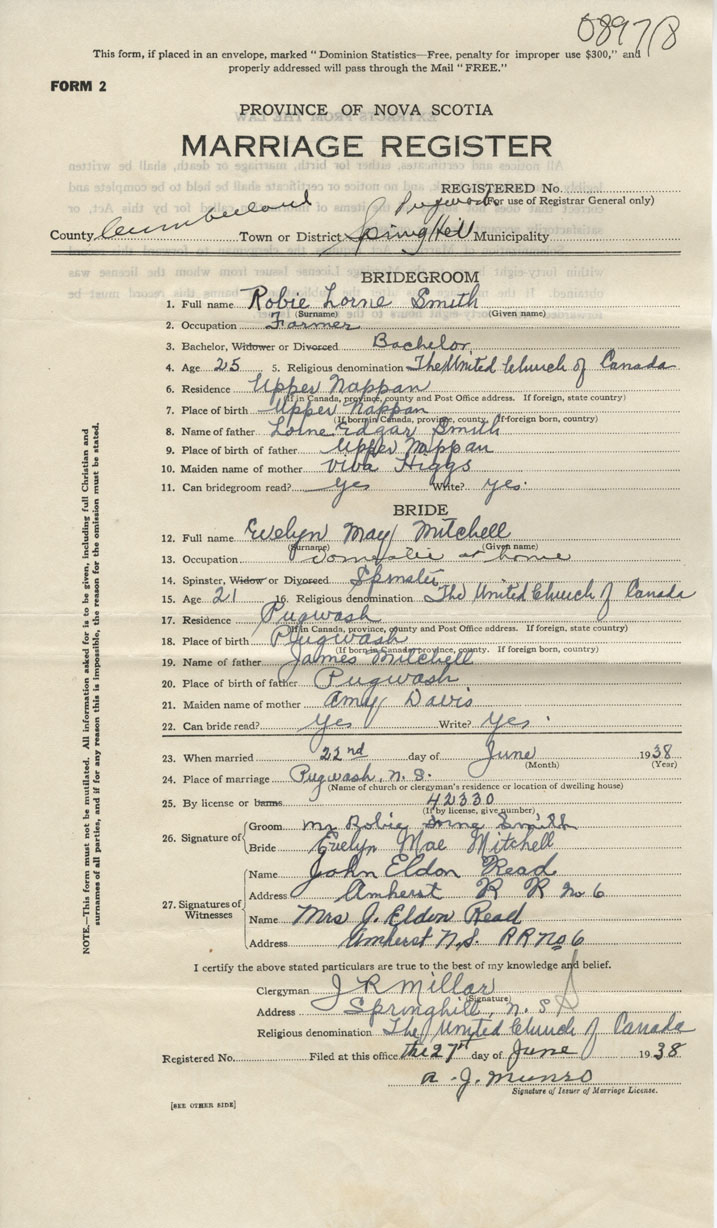 0897/8
This form, if placed in an envelope, marked "Dominion Statistics—Free, penalty for improper use $300," and
properly addressed will pass through the Mail "FREE."
FORM 2
PROVINCE OF NOVA SCOTIA
MARRIAGE REGISTER
REGISTERED No.
(For use of Registrar General only)
Pugwash
County Cumberland Town or District Springhill Municipality
BRIDEGROOM
1. Full name Robie Lorne Smith
(Surname) (Given name)
2. Occupation Farmer
3. Bachelor, Widower or Divorced Bachelor
4. Age 25 5. Religious denomination The United Church of Canada
6. Residence Upper Nappan
(If in Canada, province, county and Post Office address. If foreign, state country)
7. Place of birth Upper Nappan
(If born in Canada, province, county. If foreign born, country)
8. Name of father Lorne Edgar Smith
9. Place of birth of father Upper Nappan
10. Maiden name of mother Viva Higgs
11. Can bridegroom read? yes Write? yes.
BRIDE
12. Full name Evelyn May Mitchell
(Surname) (Given name)
13. Occupation Domestic at home
14. Spinster, Widow or Divorced Spinster
15. Age 21 16. Religious denomination The United Church of Canada
17. Residence Pugwash
(If in Canada, province, county and Post Office address. If foreign, state country)
18. Place of birth Pugwash
(If born in Canada, province, county. If foreign born, country)
19. Name of father James Mitchell
20. Place of birth of father Pugwash
21. Maiden name of mother Amy Davis
22. Can bride read? yes Write? yes.
23. When married 22nd day of June 1938
(Month) (Year)
24. Place of marriage Pugwash, N. S.
(Name of church or clergyman's residence or location of dwelling house)
25. By license or banns 42330
(If by license, give number)
26. Signature of Groom Mr Robie Lorne Smith
Bride Evelyn Mae Mitchell
27. Signatures of Witnesses
Name John Eldon Read
Address Amherst R R No 6
Name Mrs J. Eldon Read
Address Amherst N.S. RR no 6
I certify the above stated particulars are true to the best of my knowledge and belief.
Clergyman J R Millar
(Signature)
Address Springhill, N. S
Religious denomination The United Church of Canada
Registered No. Filed at this office the 27th day of June 1938
A. J. Munro
Signature of Issuer of Marriage License.
[SEE OTHER SIDE]
NOTE.—This form must not be mutilated. All information asked for is to be given, including full Christian and
surnames of all parties, and if for any reason this is impossible, the reason for the omission must be stated.